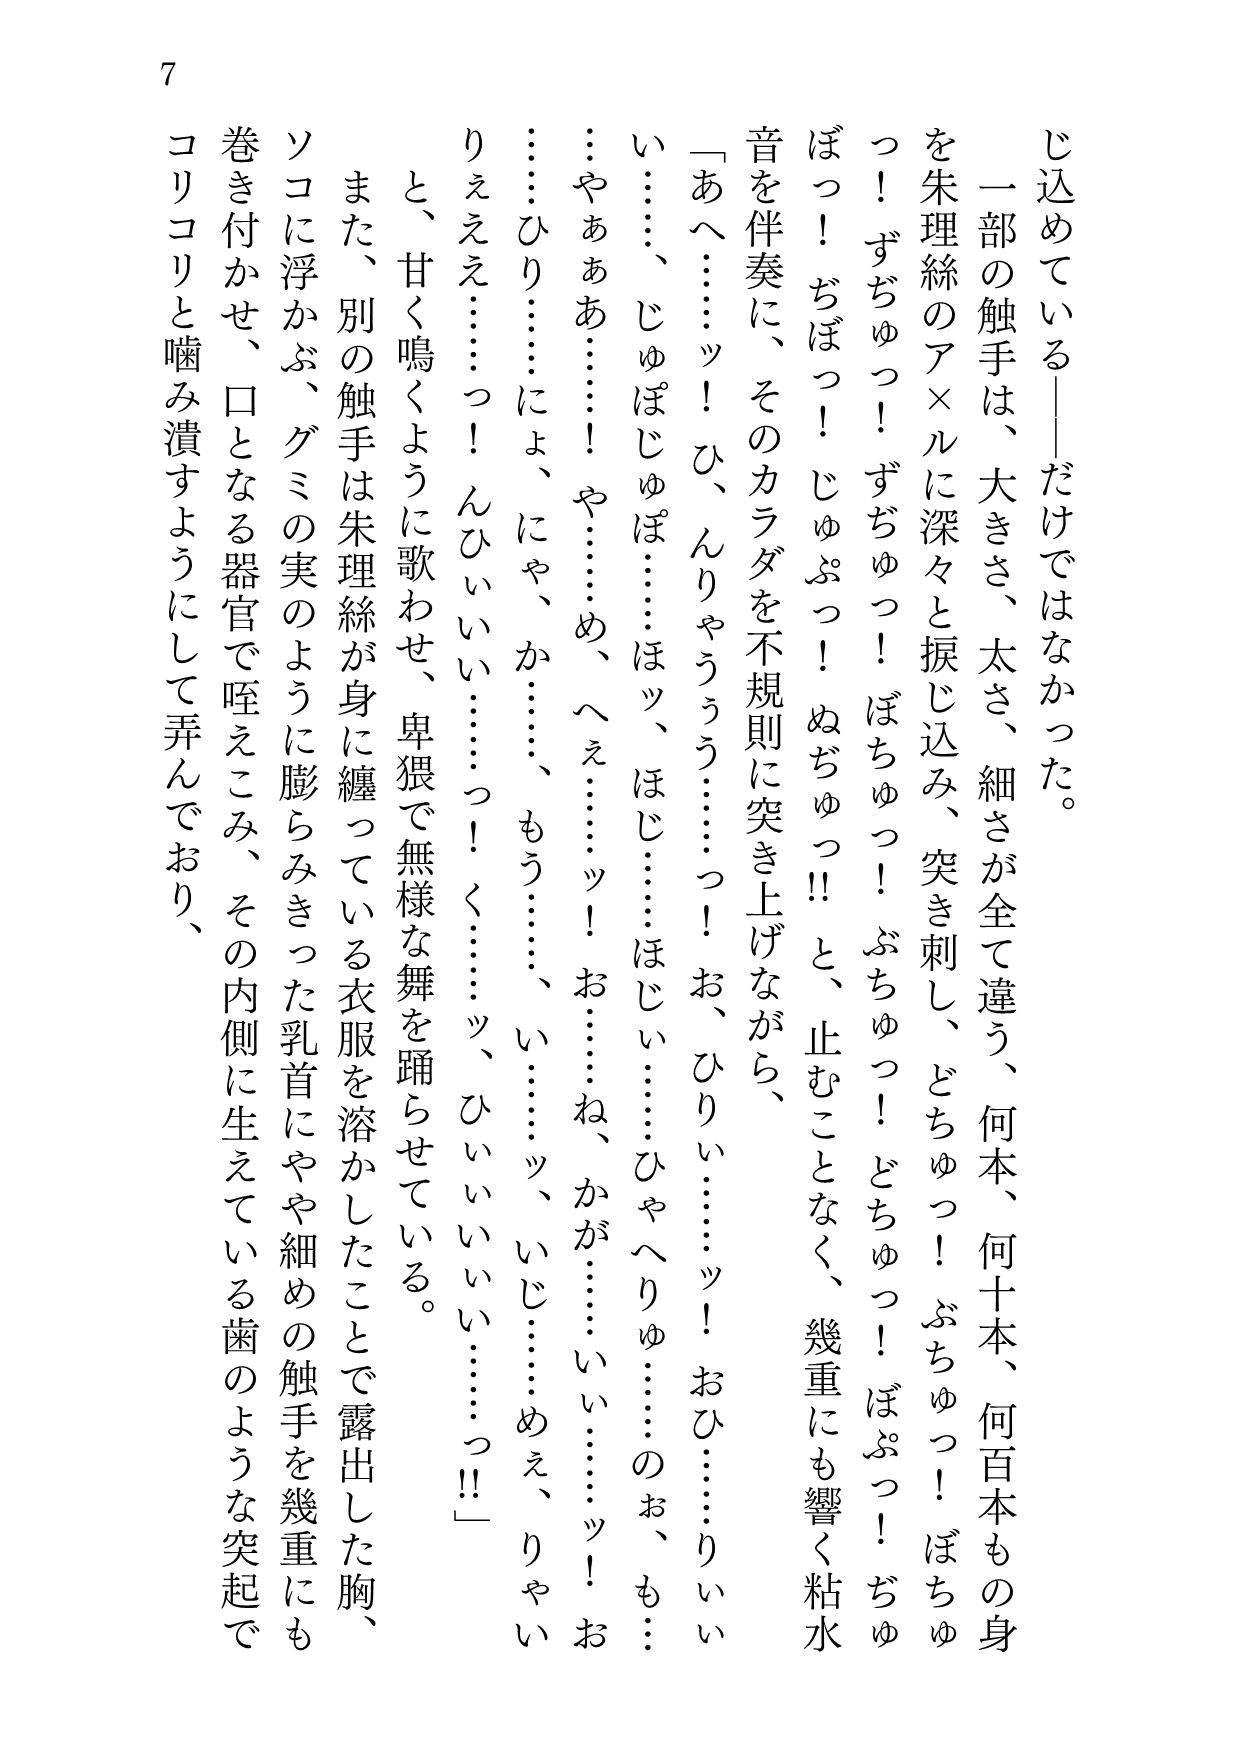 7
じ込めている――だけではなかった。
　一部の触手は、大きさ、太さ、細さが全て違う、何本、何十本、何百本もの身
を朱理絲のア×ルに深々と捩じ込み、突き刺し、どちゅっ！　ぶちゅっ！　ぼちゅ
っ！　ずぢゅっ！　ずぢゅっ！　ぼちゅっ！　ぶちゅっ！　どちゅっ！　ぼぷっ！　ぢゅ
ぼっ！　ぢぼっ！　じゅぷっ！　ぬぢゅっ!!　と、止むことなく、幾重にも響く粘水
音を伴奏に、そのカラダを不規則に突き上げながら、
「あへ……ッ！　ひ、んりゃうぅう……っ！　お、ひりぃ……ッ！　おひ……りぃぃ
い……、じゅぽじゅぽ……ほッ、ほじ……ほじぃ……ひゃへりゅ……のぉ、も…
…やぁぁあ……！　や……め、へぇ……ッ！　お……ね、かが……いぃ……ッ！　お
……ひり……にょ、にゃ、か……、もう……、い……ッ、いじ……めぇ、りゃい
りぇええ……っ！　んひぃいい……っ！　く……ッ、ひぃいいぃい……っ!!」
　と、甘く鳴くように歌わせ、卑猥で無様な舞を踊らせている。
　また、別の触手は朱理絲が身に纏っている衣服を溶かしたことで露出した胸、
ソコに浮かぶ、グミの実のように膨らみきった乳首にやや細めの触手を幾重にも
巻き付かせ、口となる器官で咥えこみ、その内側に生えている歯のような突起で
コリコリと噛み潰すようにして弄んでおり、